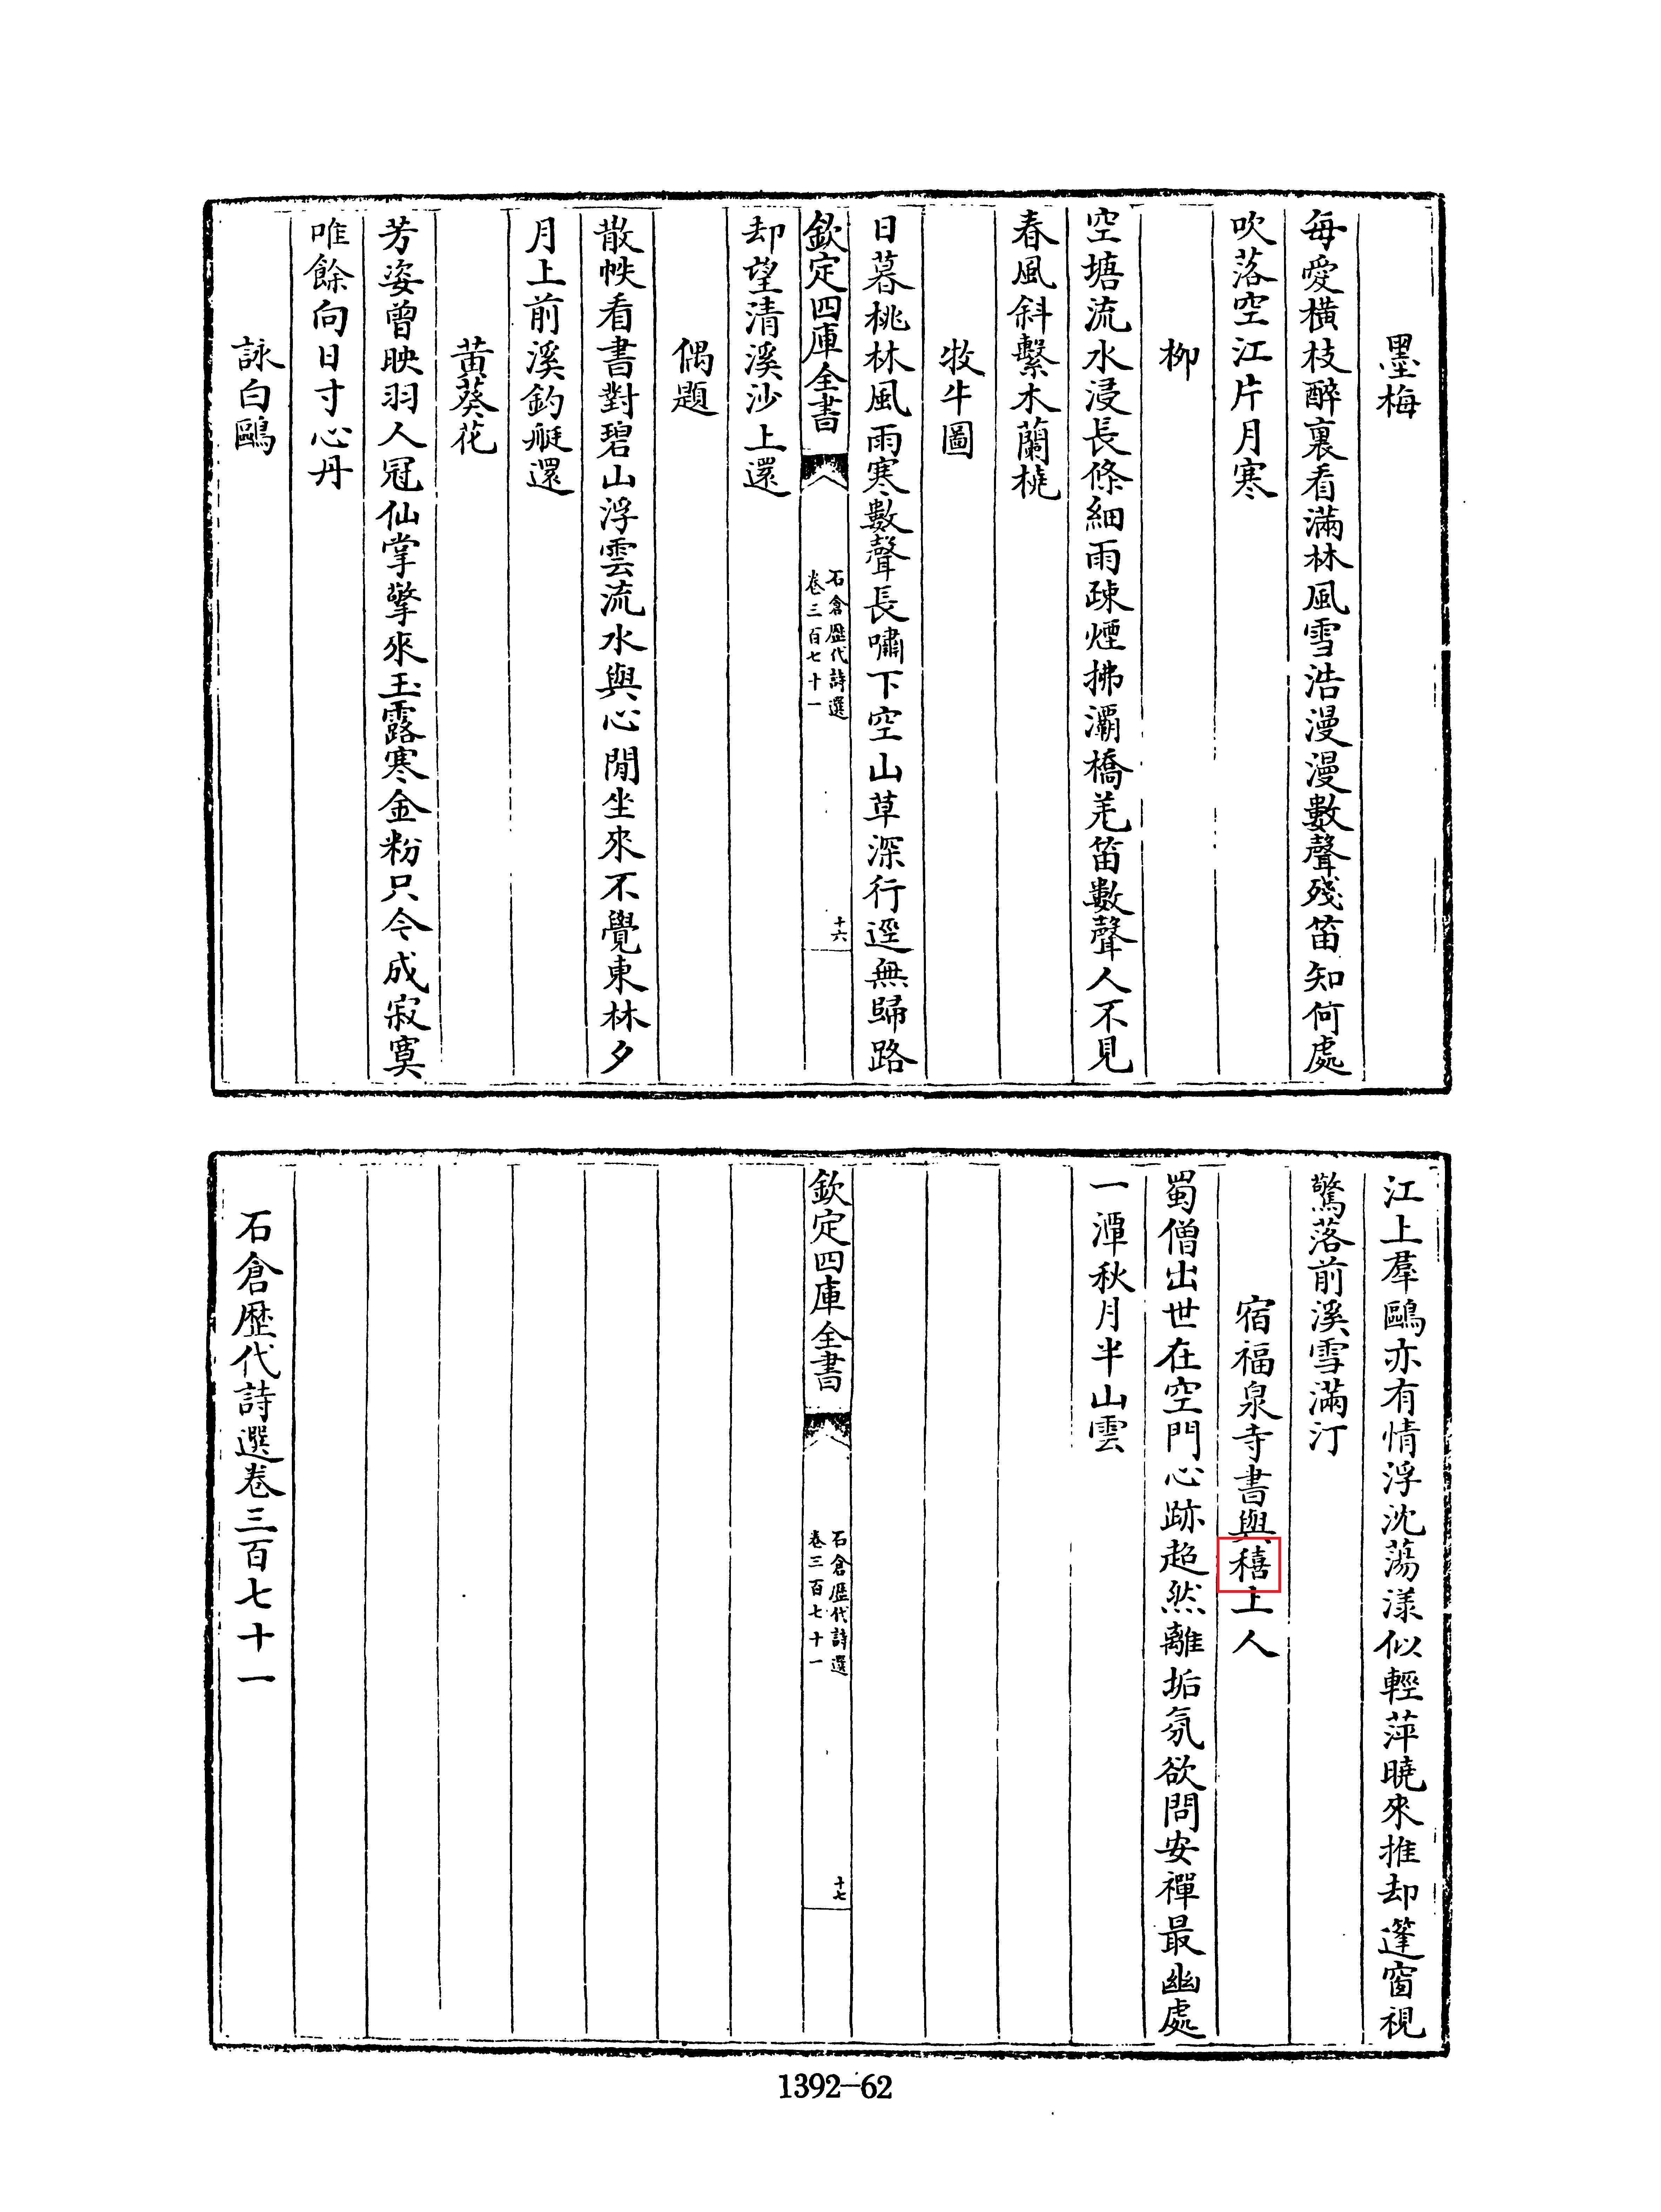 墨梅
每愛橫枝醉裏看滿林風雪浩漫漫數聲殘笛知何處
吹落空江片月寒
柳
空塘流水浸長條細雨疎煙拂灞橋羌笛數聲人不見
春風斜繫木蘭橈
牧牛圖
日暮桃林風雨寒數聲長嘯下空山草深行逕無歸路
欽定四庫全書
石倉歷代詩選
卷三百七十一
十六
却望清溪沙上還
偶題
散帙看書對碧山浮雲流水與心閒坐來不覺東林夕
月上前溪釣艇還
黃葵花
芳姿曾映羽人冠仙掌擎來玉露寒金粉只令成寂寞
唯餘向日寸心丹
詠白鷗
江上羣鷗亦有情浮沈蕩漾似輕萍曉來推却篷窗視
驚落前溪雪滿汀
宿福泉寺書與穡上人
蜀僧出世在空門心跡超然離垢氛欲問安禪最幽處
一潭秋月半山雲
欽定四庫全書
石倉歷代詩選
卷三百七十一
十七
石倉歷代詩選卷三百七十一
1392-62